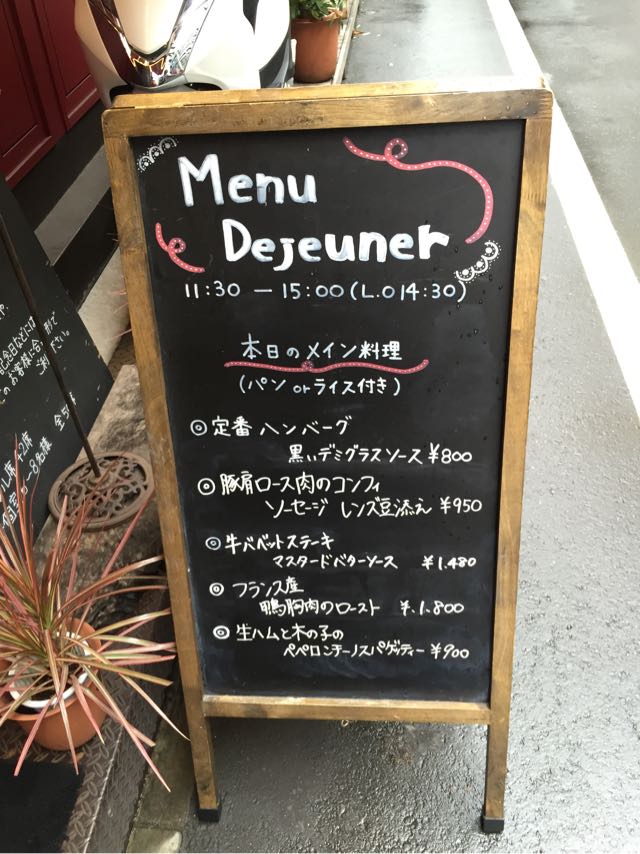 Menu
Dejeuner
11:30 — 15:00 (L.O 14:30)
本日のメイン料理
(パン orライス付き)
◎定番 ハンバーグ
黒いデミグラスソース ¥800
◎豚肩ロース肉のコンフィ
ソーセージ レンズ豆添え ¥950
◎牛バベットステーキ
マスタードバターソース ¥1.480
◎フランス産
鴨胸肉のロースト ¥.1.800
◎生ハムと木の子の
ペペロンチーノスパゲッティー ¥900